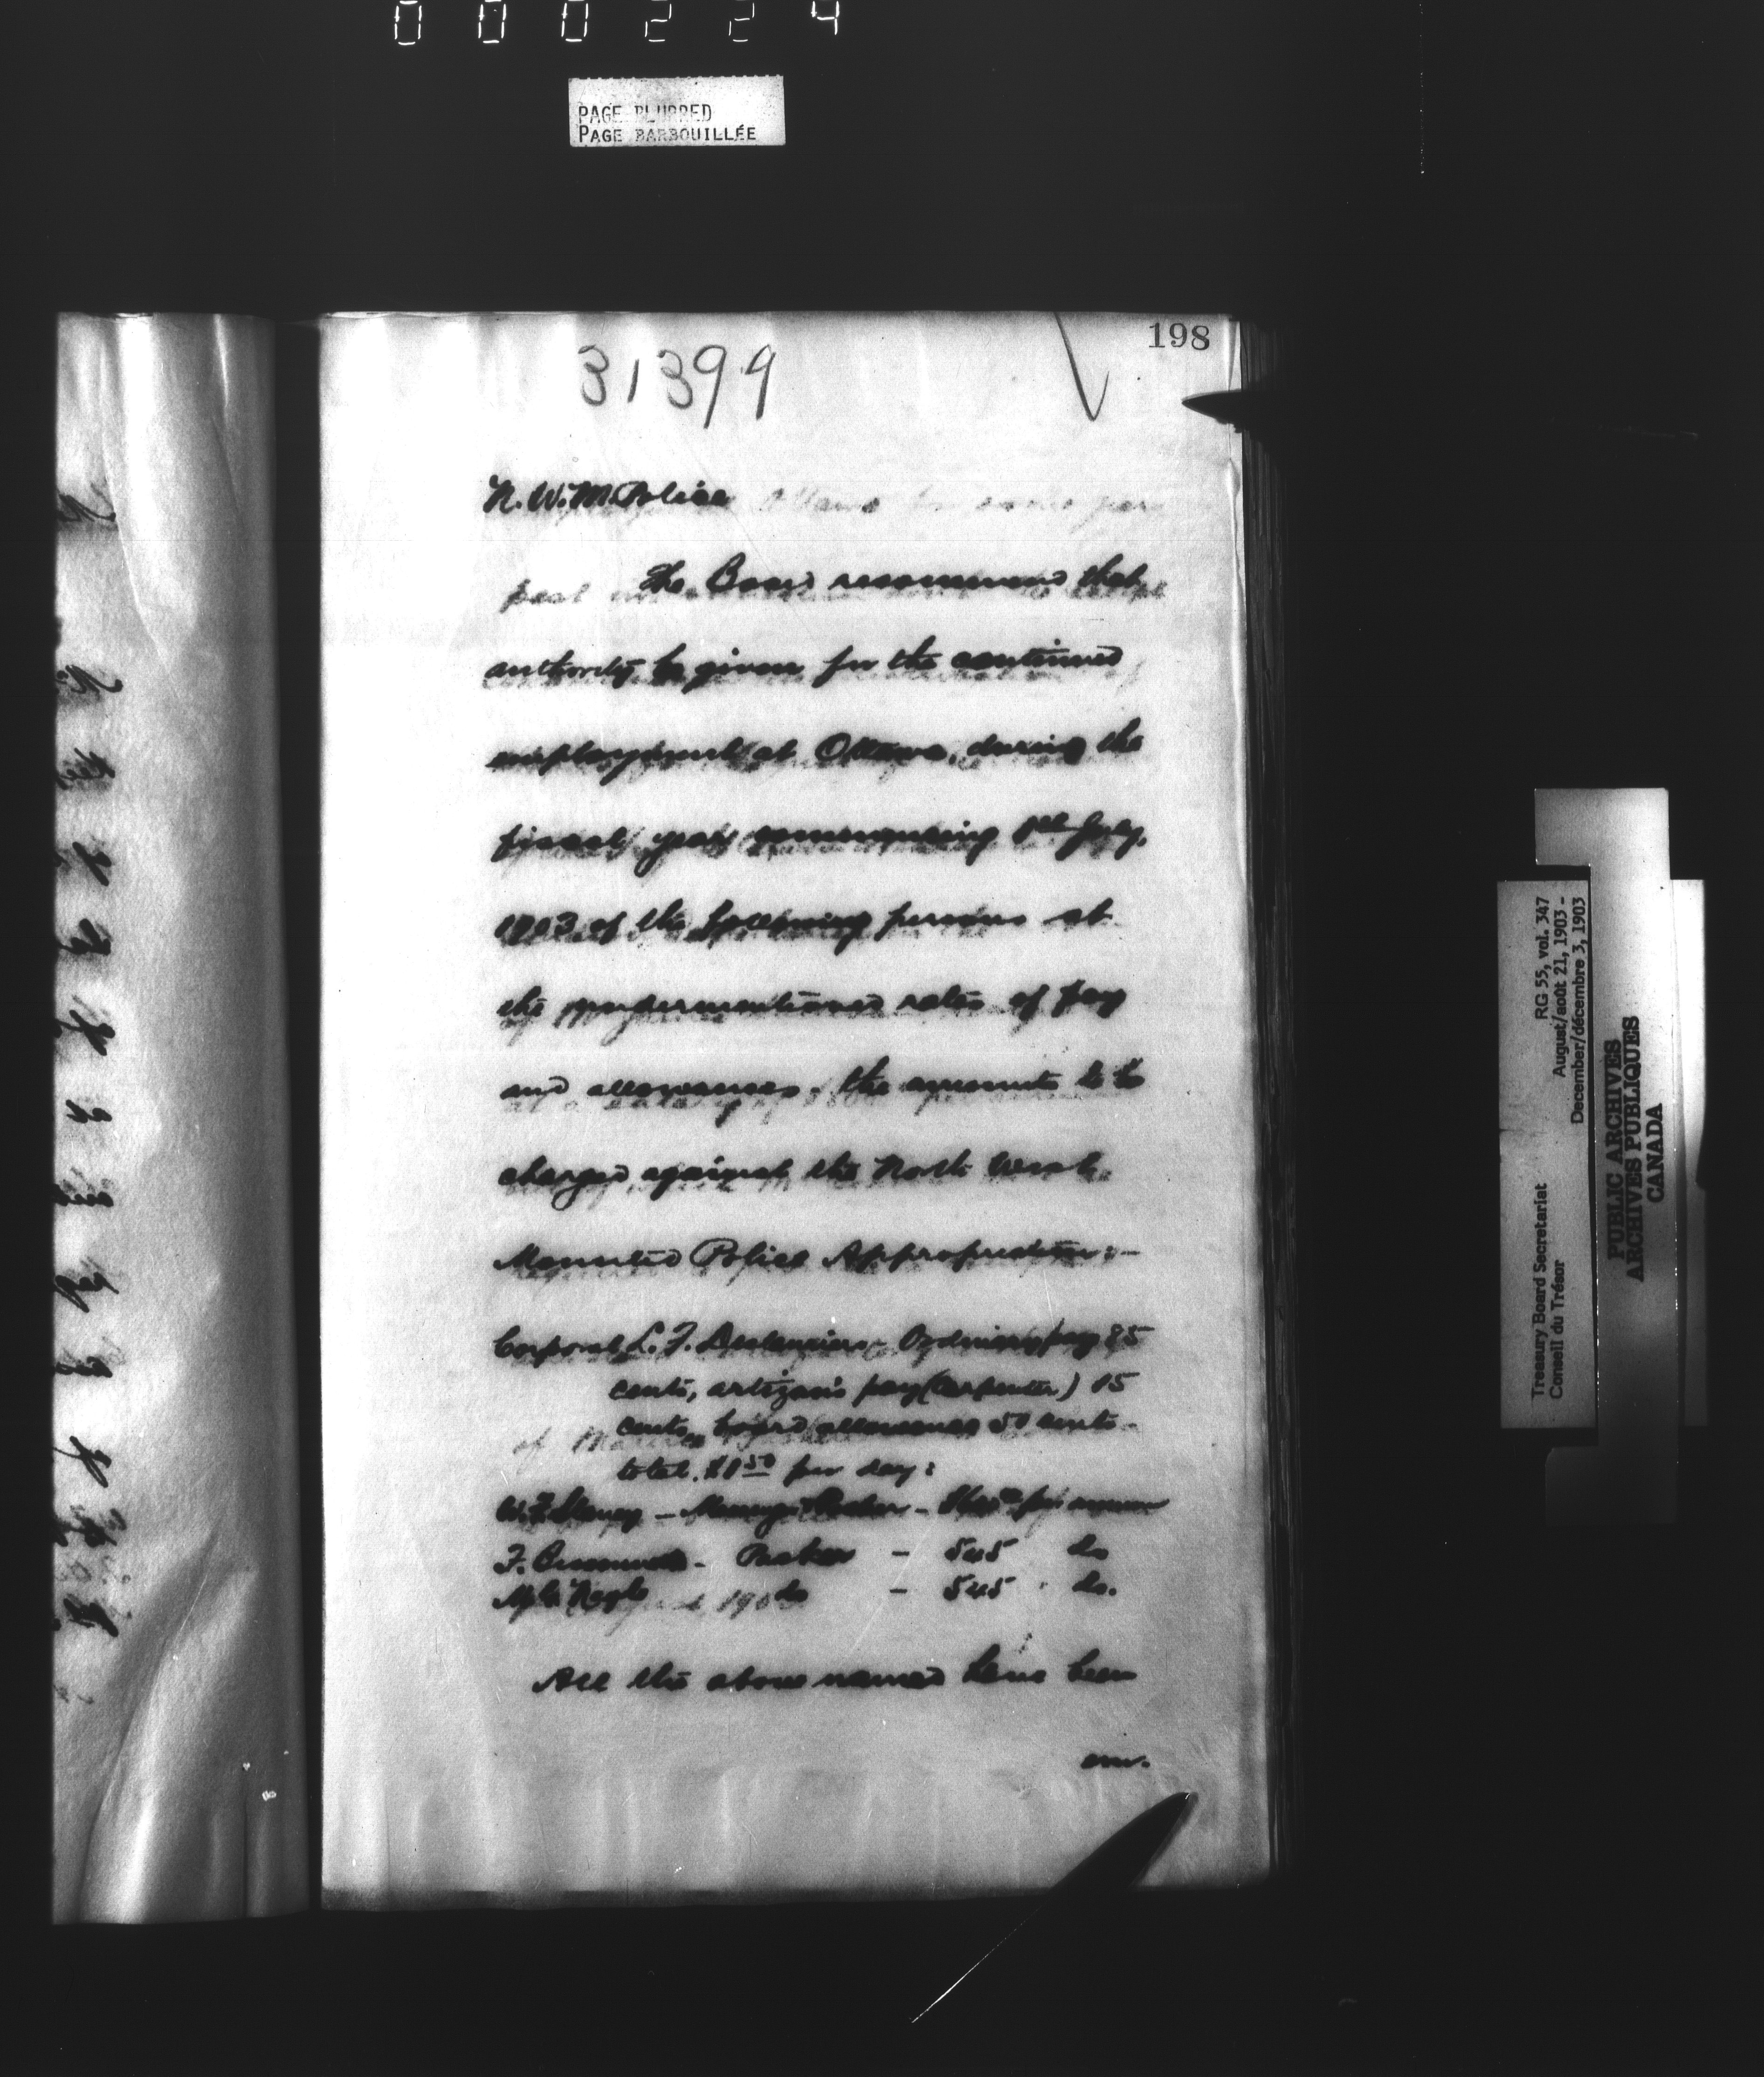 000224
PAGE BLURRED
PAGE BARBOUILLÉE
198
31399
N. W. M. Police
The Board recommend that
authority be given for the continued
employment at Ottawa, during the
fiscal year commencing 1st July,
1903 of the following persons at
the undermentioned rates of pay
and allowances, the amounts to be
charged against the North West
Mounted Police Appropriation:-
Corporal L. F. - Ordinary pay 85
cents, artizan's pay (carpenter) 15
cents, board allowance 50 cents -
total $1.50 per day:
W. - Packer - per annum
F. - Packer - 545 do
do - 545 do.
All the above named have been
RG 55, vol. 347
August/août 21, 1903 -
December/décembre 3, 1903
Treasury Board Secretariat
Conseil du Trésor
PUBLIC ARCHIVES
ARCHIVES PUBLIQUES
CANADA